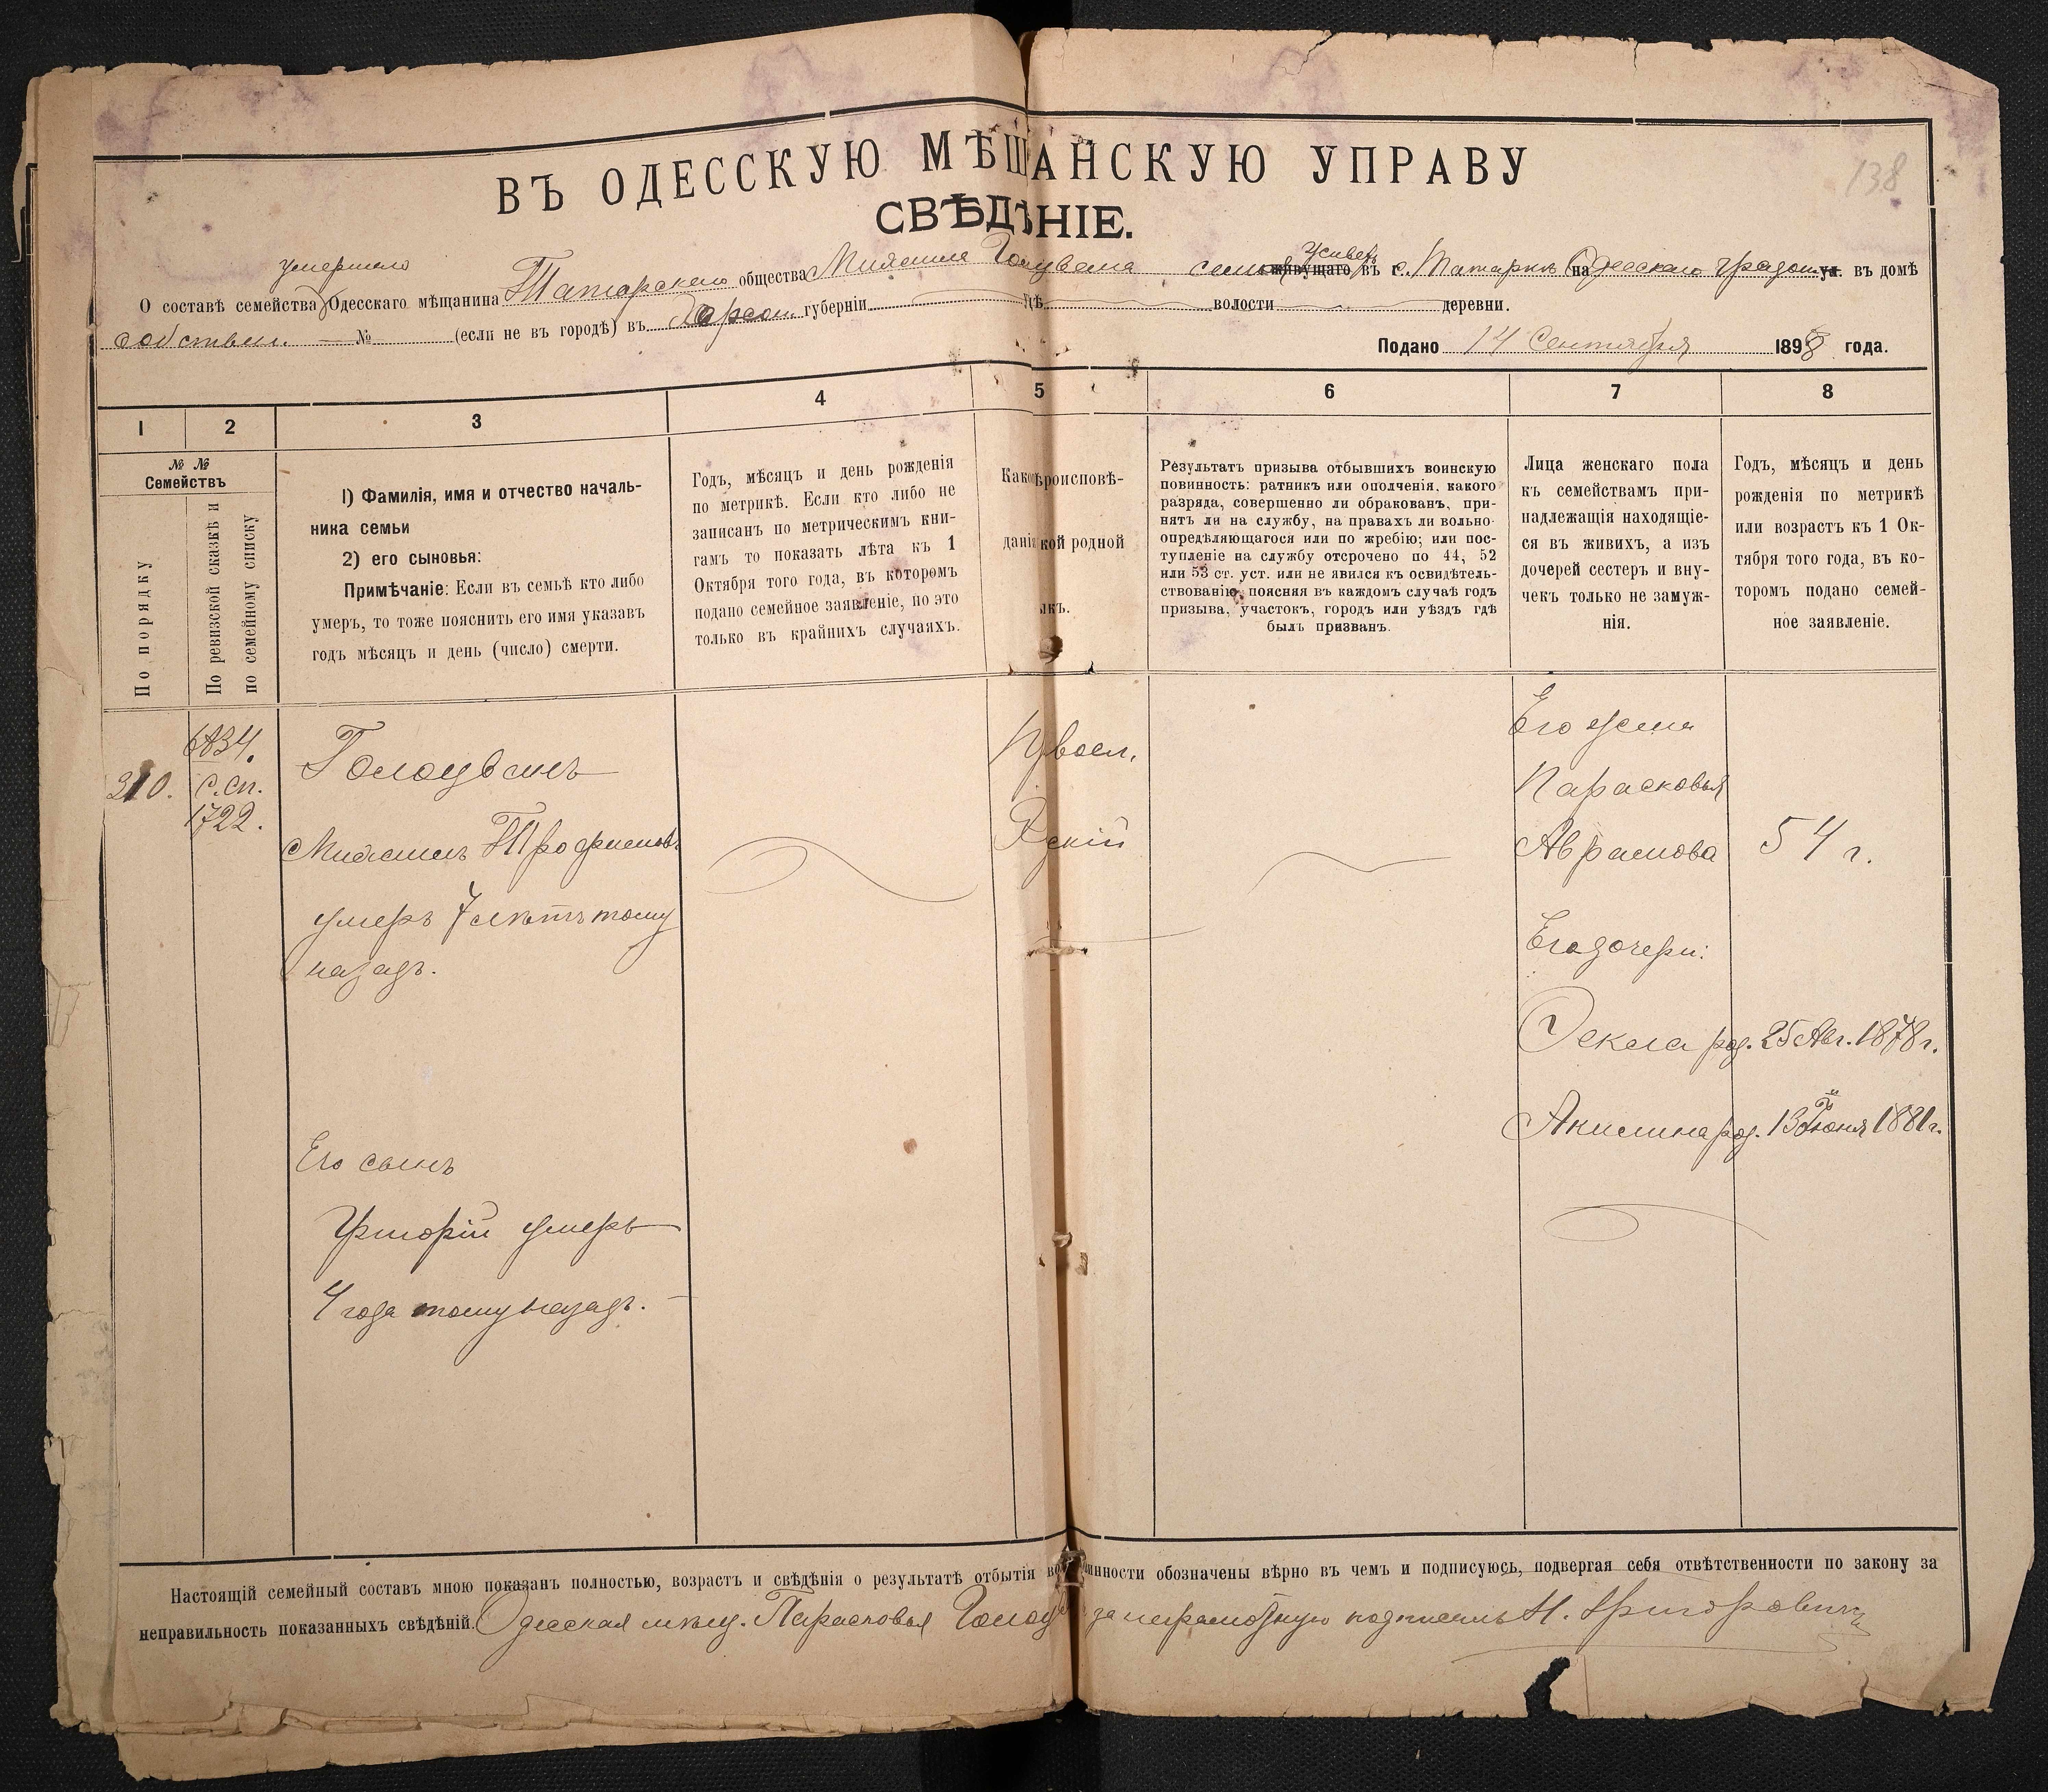 138
ВЪ ОДЕССКУЮ МѢЩАНСКУЮ УПРАВУ
СВѢДѢНІЕ.
умершаго
О составѣ семейства Одесскаго мѣщанина Татарскаго общества живущаго въ г. с. Татарка на Одесскаго градон. ул. въ домѣ
собствен. № (если не въ городѣ) въ Херсон. губерніи волости деревни.
Подано 14 Сентября 1898 года.
1 2 3 4 5 6 7 8
№ №
Семействъ
По порядку
По ревизской сказкѣ и
по семейному списку
1) Фамилія, имя и отчество началь-
ника семьи
2) его сыновья:
Примѣчаніе: Если въ семьѣ кто либо
умеръ, то тоже пояснить его имя указавъ
годъ мѣсяцъ и день (число) смерти.
Годъ, мѣсяцъ и день рожденія
по метрикѣ. Если кто либо не
записанъ по метрическимъ кни-
гамъ то показать лѣта къ 1
Октября того года, въ которомъ
подано семейное заявленіе, но это
только въ крайнихъ случаяхъ.
Како ѣроисповѣ-
дані кой родной
ыкъ.
Результатъ призыва отбывшихъ воинскую
повинность: ратникъ или ополченія, какого
разряда, совершенно ли обракованъ, при-
нятъ ли на службу, на правахъ ли вольно-
опредѣляющагося или по жребію; или пос-
тупленіе на службу отсрочено по 44, 52
или 53 ст. уст. или не явился къ освидѣтель-
ствованію, поясняя въ каждомъ случаѣ годъ
призыва, участокъ, городъ или уѣздъ гдѣ
былъ призванъ.
Лица женскаго пола
къ семействамъ при-
надлежащія находящіе-
ся въ живихъ, а изъ
дочерей сестеръ и вну-
чекъ только не замуж-
нія.
Годъ, мѣсяцъ и день
рожденія по метрикѣ
или возрастъ къ 1 Ок-
тября того года, въ ко-
торомъ подано семей-
ное заявленіе.
310.
6834.
с.сп.
1722.
Голоцванъ
Трофимовъ
умеръ 7 лѣтъ тому
назадъ.
Его сынъ
Григорій умеръ
4 года тому назадъ.
Правосл.
Рускій
Его жена
Парасковья
Аврамова 54 г.
Его дочери:
Фекла род. 25 Авг. 1878 г.
Акилина род. 13 Іюня 1881 г.
Настоящій семейный составъ мною показанъ полностью, возрастъ и свѣдѣнія о результатѣ отбытія во инности обозначены вѣрно въ чемъ и подписуюсь, подвергая себя отвѣтственности по закону за
неправильность показанныхъ свѣдѣній. Одесская мѣщ. Парасковья Голоц за неграмотную подписалъ Н. Григоровичъ